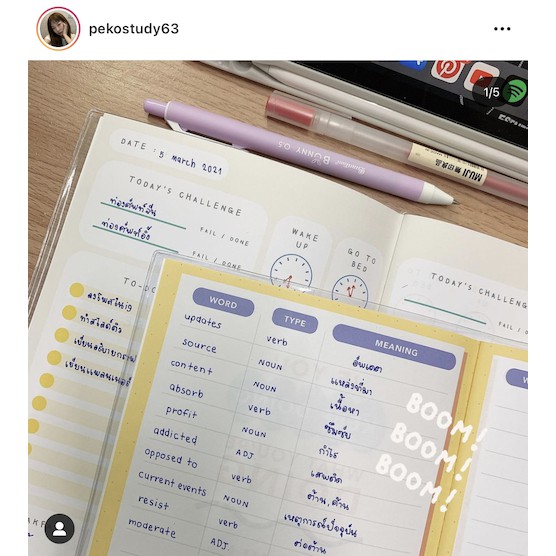 pekostudy63
1/5
DATE : 5 March 2021
TODAY'S CHALLENGE
ท่องศัพท์จีน
FAIL / DONE
ท่องศัพท์อังกฤษ
FAIL / DONE
WAKE UP
GO TO BED
TODAY'S CHALLENGE
FAIL / DONE
BUNNY 0.5
MUJI 無印良品
WORD TYPE MEANING
updates verb อัพเดต
source NOUN แหล่งที่มา
content NOUN เนื้อหา
absorb verb ซึมซับ
profit NOUN กำไร
addicted ADJ. เสพติด
opposed to verb ต่อต้าน, ค้าน
current events NOUN เหตุการณ์ปัจจุบัน
resist verb ต่อต้าน
moderate ADJ.
BOOM!
BOOM!
BOOM!